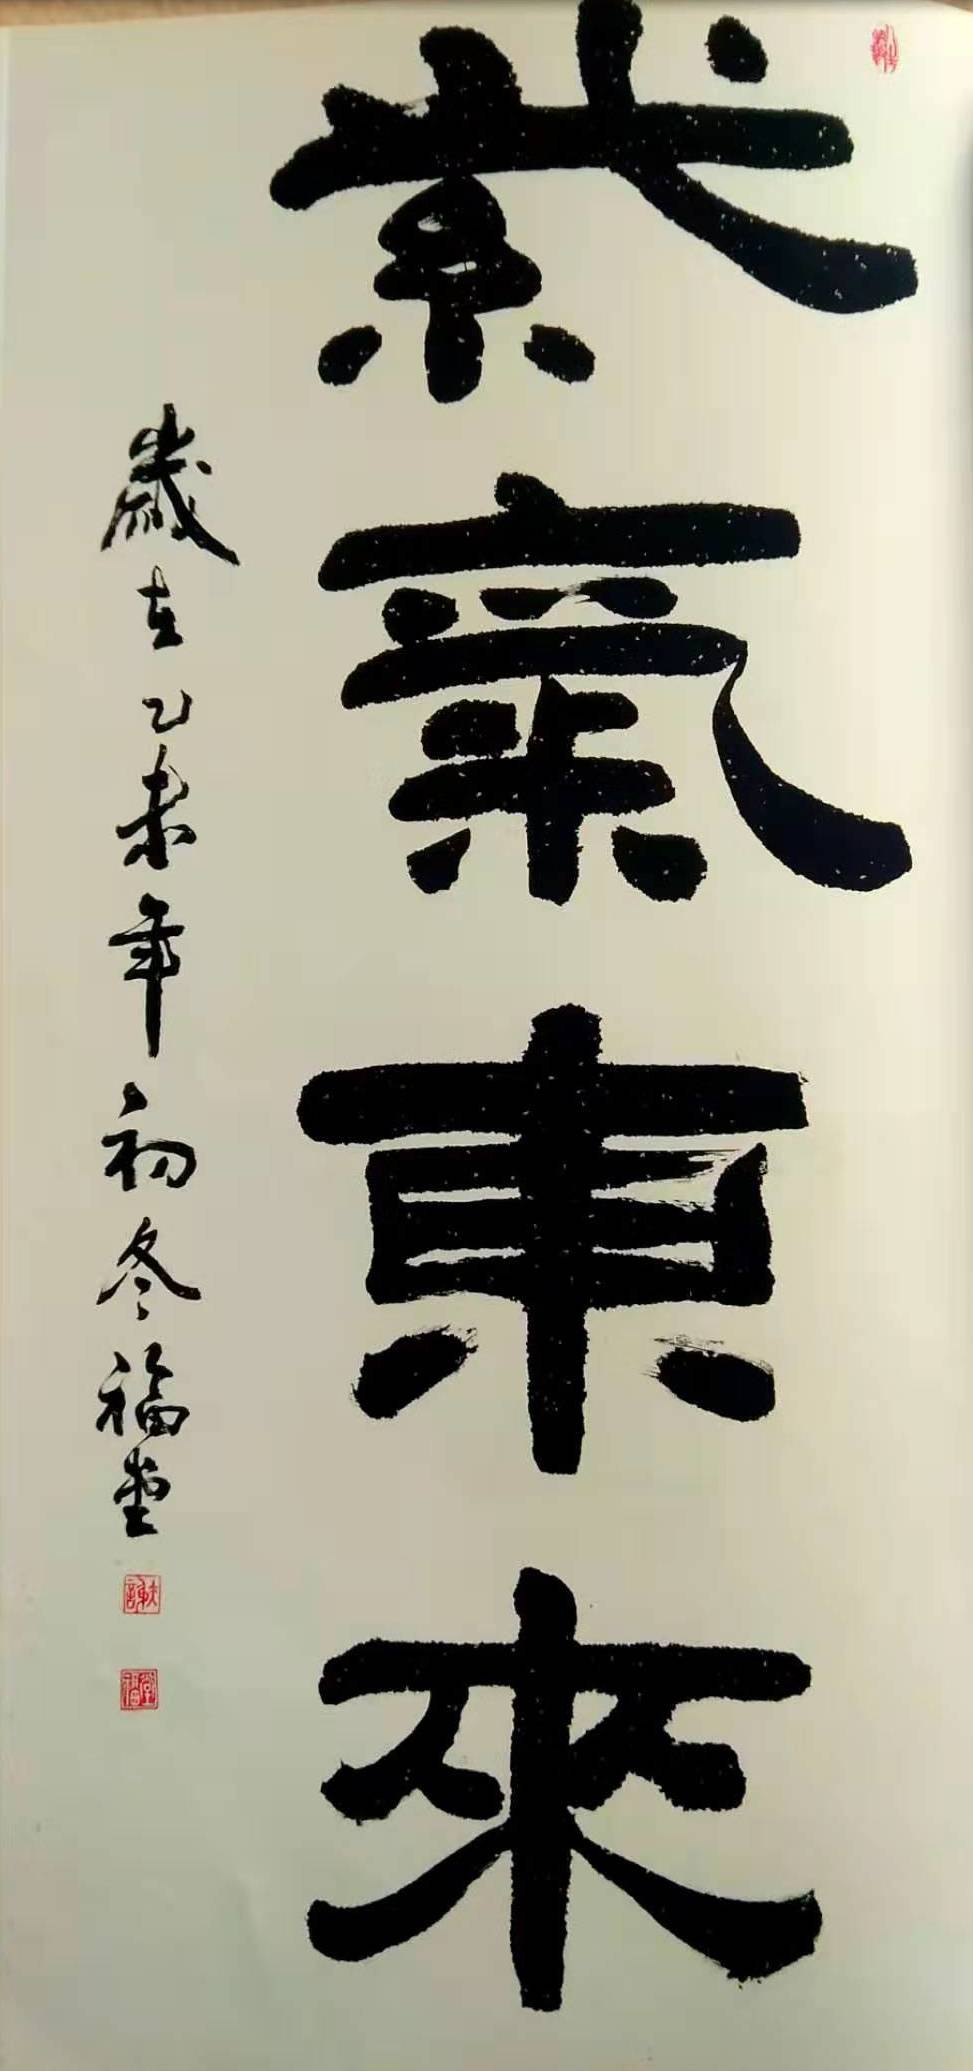 紫氣東來
歲在乙未年初冬福堂